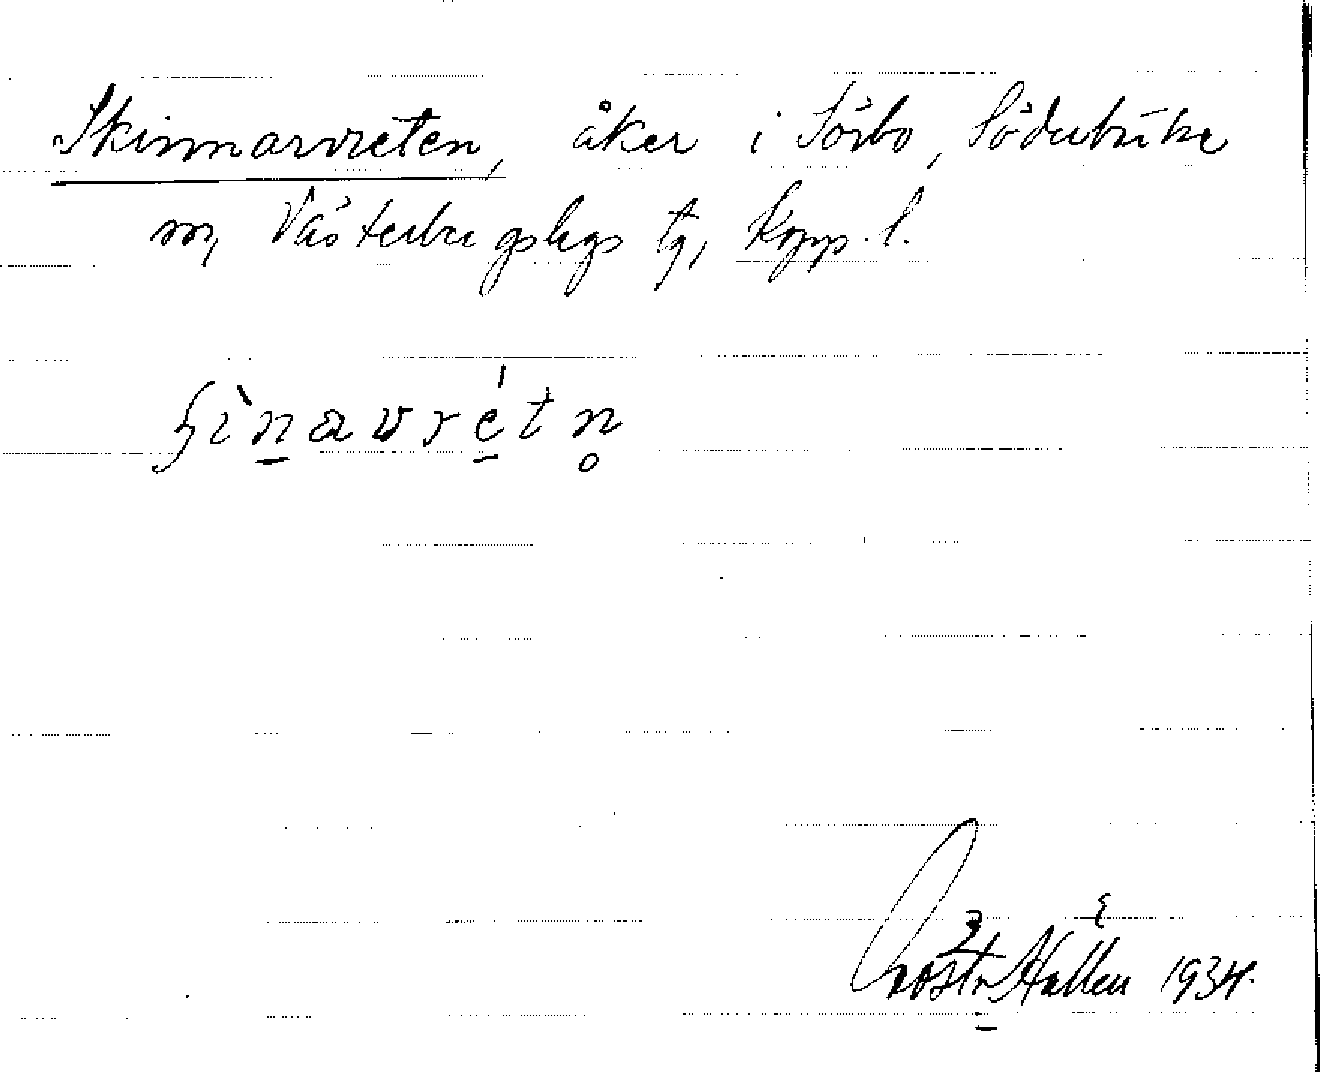 Skinnarvreten, åker i Sörbo, Söderbärke
sn, Västerbergslags tg, Kopp. l.
ʃìnavrétn̥
Hallén 1934.